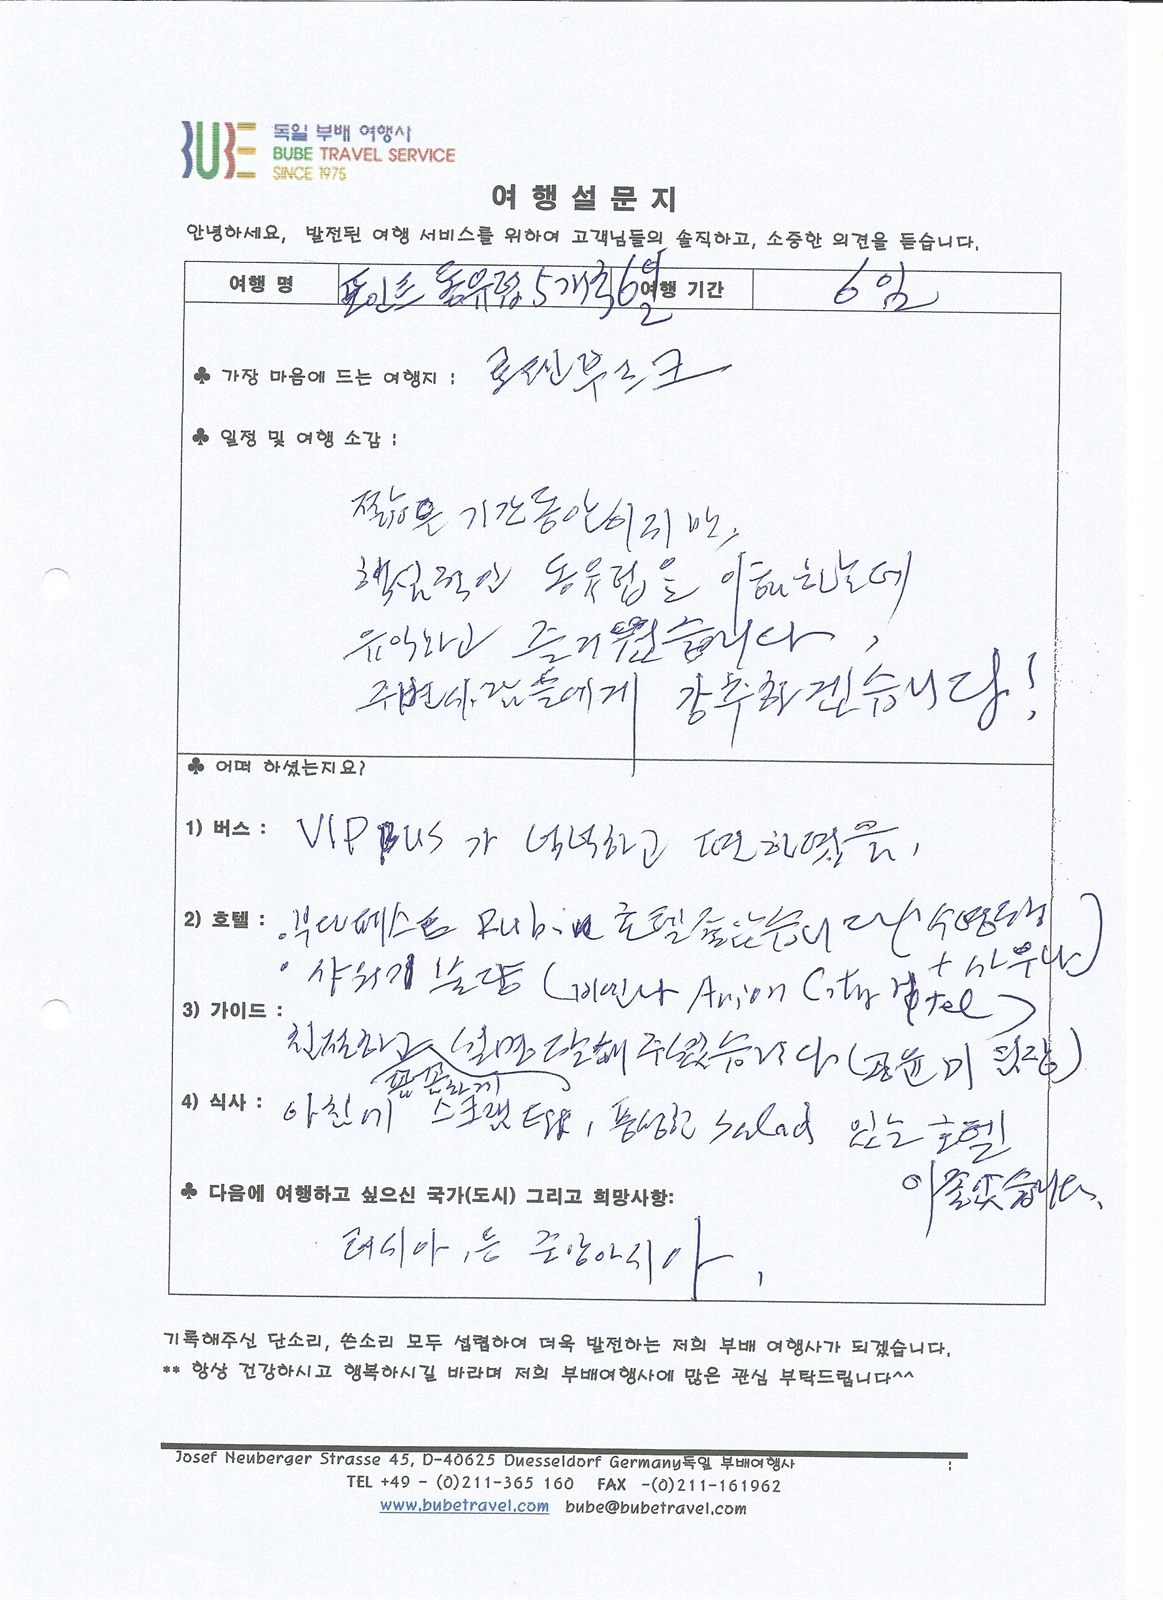 BUBE
독일 부배 여행사
BUBE TRAVEL SERVICE
SINCE 1975
여 행 설 문 지
안녕하세요,  발전된 여행 서비스를 위하여 고객님들의 솔직하고, 소중한 의견을 듣습니다.
여행 명 포인트 동유럽 5개국 6일 여행 기간 6일
♣ 가장 마음에 드는 여행지 :
♣ 일정 및 여행 소감 :
짧은 기간동안이지만,
핵심적인 동유럽을 이해하는데
유익하고 즐거웠습니다,
주변사람들에게 강추하겠습니다!
♣ 어떠 하셨는지요?
1) 버스 : VIP BUS 가 넉넉하고 편하였음,
2) 호텔 : ·부다페스트 Rubin 호텔 좋았습니다 (수영장
+ 사우나)
· 샤워기 불량 (비엔나 City Hotel)
3) 가이드 :
친절하고 설명 잘해 주셨습니다 (윤미 팀장)
꼼꼼하게
4) 식사 : 아침에 스크램 Egg, 풍성한 Salad 있는 호텔
이 좋았습니다.
♣ 다음에 여행하고 싶으신 국가(도시) 그리고 희망사항:
러시아, 등 중앙아시아,
기록해주신 단소리, 쓴소리 모두 섭렵하여 더욱 발전하는 저희 부배 여행사가 되겠습니다.
** 항상 건강하시고 행복하시길 바라며 저희 부배여행사에 많은 관심 부탁드립니다^^
Josef Neuberger Strasse 45, D-40625 Duesseldorf Germany독일 부배여행사
TEL +49 - (0)211-365 160   FAX  -(0)211-161962
www.bubetravel.com  bube@bubetravel.com